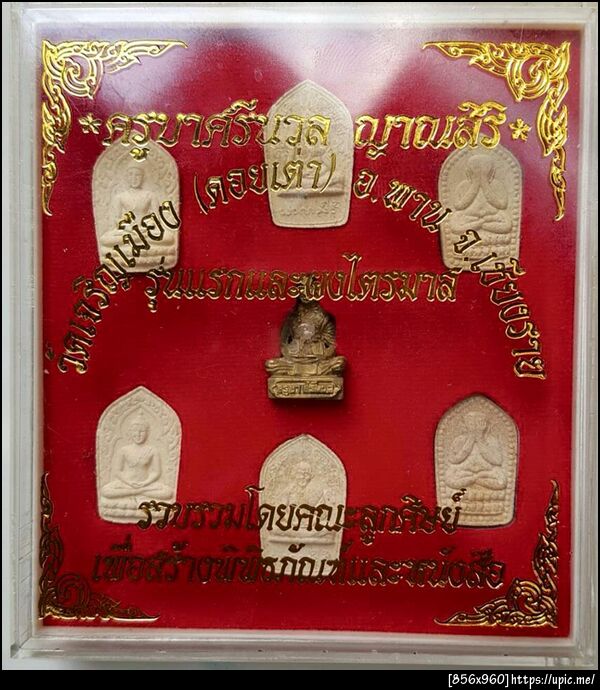 *ครูบาศรีนวล ญาณสิริ*
วัดเจริญเมือง (ดอยเต่า) อ.พาน จ.เชียงราย
รุ่นแรกและผงไตรมาส
รวบรวมโดยคณะลูกศิษย์
เพื่อสร้างพิพิธภัณฑ์และหนังสือ
[856x960]https://upic.me/